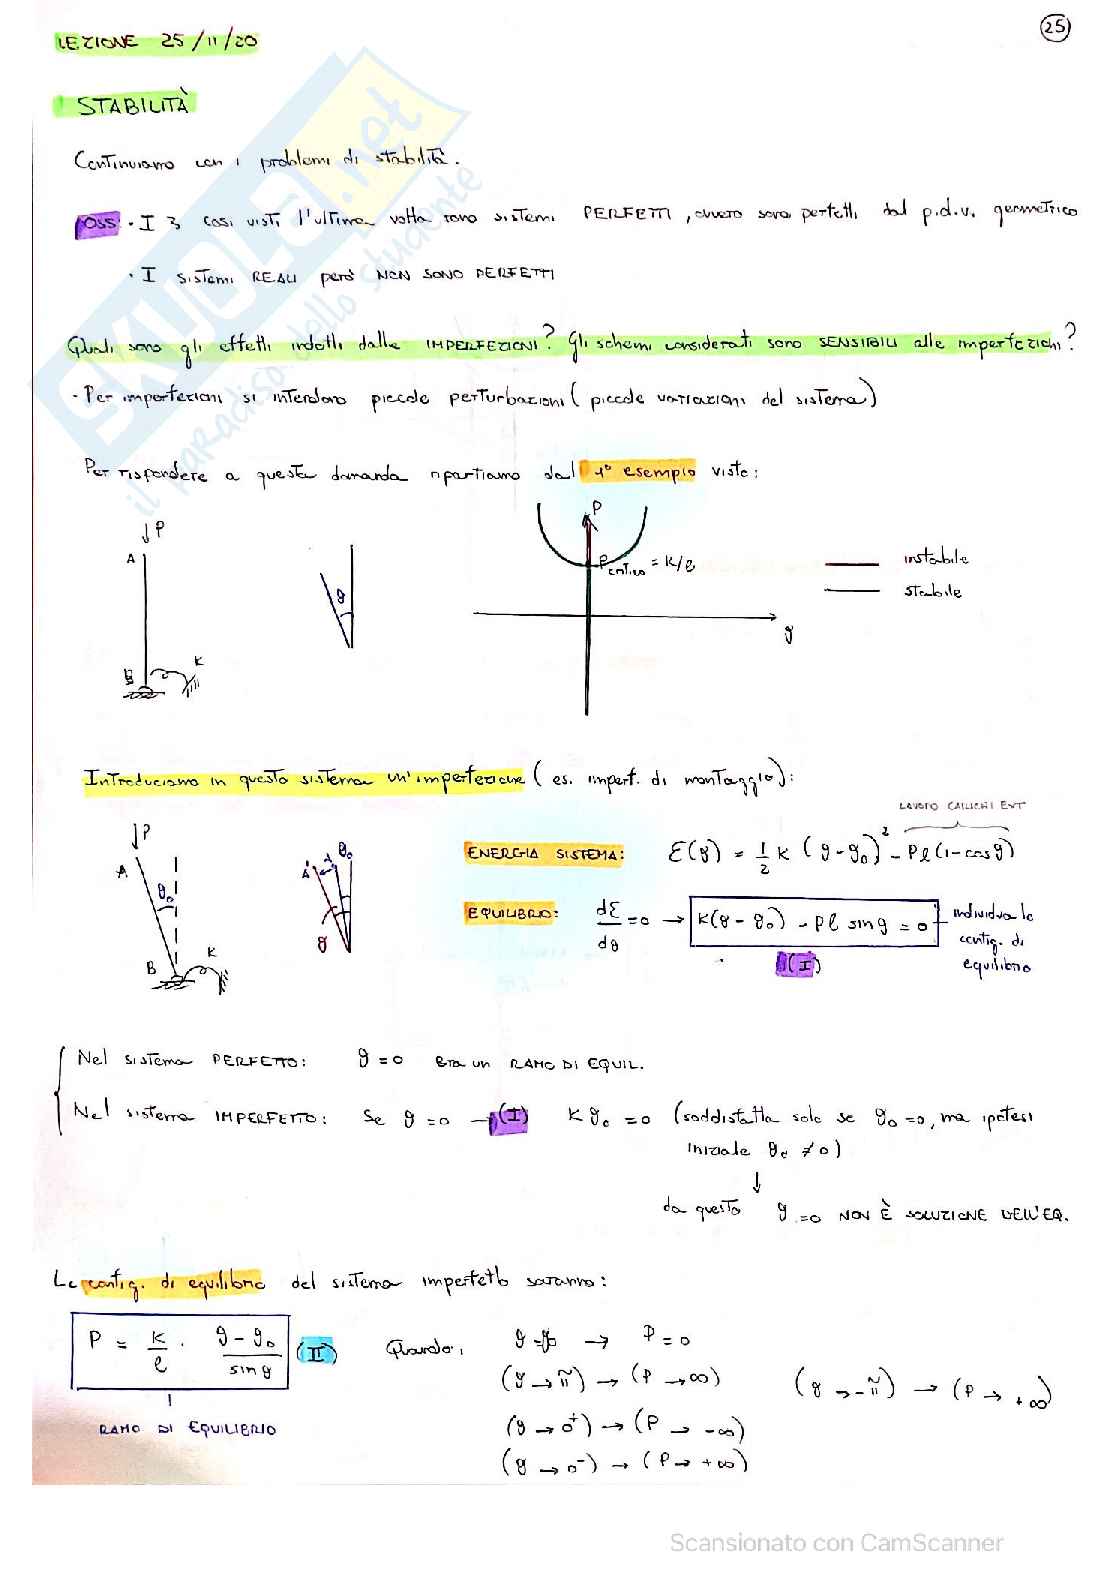 25
LEZIONE 25/11/20
STABILITÀ
Continuiamo con i problemi di stabilità.
Oss: · I 3 casi visti l'ultima volta sono sistemi PERFETTI, ovvero sono perfetti dal p.d.v. geometrico
· I sistemi REALI però NON SONO PERFETTI
Quali sono gli effetti indotti dalle IMPERFEZIONI? Gli schemi considerati sono SENSIBILI alle imperfezioni?
· Per imperfezioni si intendono piccole perturbazioni (piccole variazioni del sistema)
Per rispondere a questa domanda ripartiamo dal 1° esempio visto:
P
A
B
K
θ
P
Pcritico = K/l
θ
instabile
stabile
Introduciamo in questo sistema un'imperfezione (es. imperf. di montaggio):
P
A
θ₀
B
K
A'
A
θ₀
θ
LAVORO CARICHI EXT
ENERGIA SISTEMA: Ɛ(θ) = 1/2 K (θ-θ₀)² - Pl(1-cosθ)
EQUILIBRIO: dƐ/dθ = 0 → K(θ-θ₀) - Pl sinθ = 0
individua le config. di equilibrio
(I)
Nel sistema PERFETTO: θ=0 ERA UN RAMO DI EQUIL.
Nel sistema IMPERFETTO: Se θ=0 → (I) Kθ₀ = 0 (soddisfatta solo se θ₀=0, ma ipotesi
iniziale θ₀ ≠ 0)
↓
da questo θ=0 NON È SOLUZIONE DELL'EQ.
Le config. di equilibrio del sistema imperfetto saranno:
P = K/l · (θ-θ₀)/sinθ (II)
RAMO DI EQUILIBRIO
Quando:
θ=θ₀ → P=0
(θ→π) → (P→∞) (θ→-π) → (P→+∞)
(θ→0⁺) → (P→-∞)
(θ→0⁻) → (P→+∞)
SKUOLA.net
il paradiso dello studente
Scansionato con CamScanner